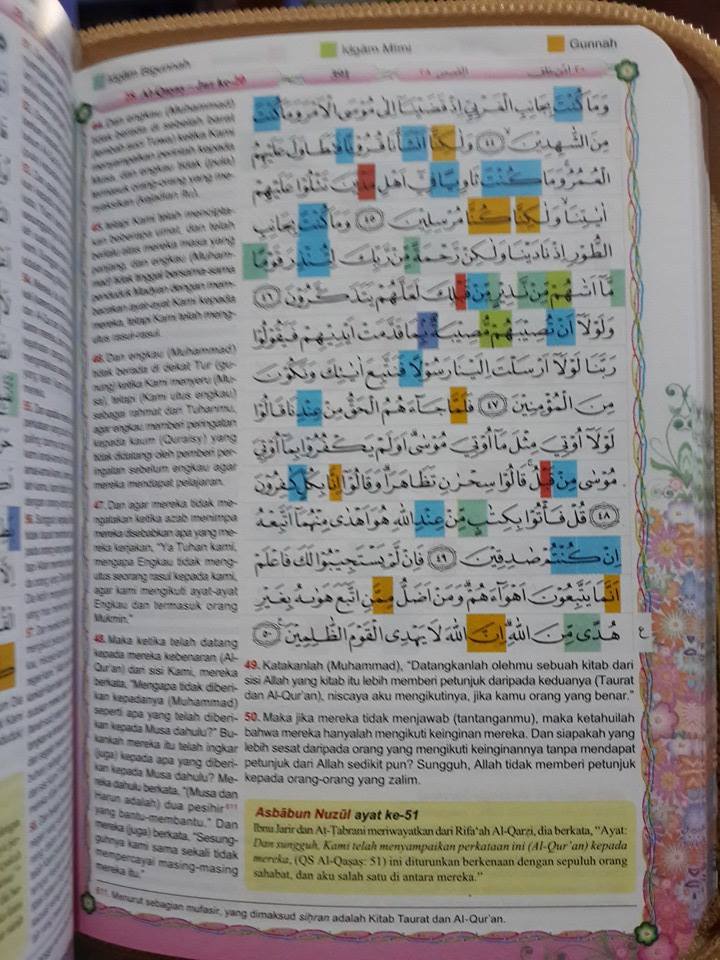 Idgām Bigunnah
Idgām Mimi
Gunnah
28. Al-Qaṣaṣ – Juz ke-20
391
القصص ٢٨
وَمَا كُنْتَ بِجَانِبِ الْغَرْبِيِّ اِذْ قَضَيْنَآ اِلٰى مُوْسَى الْاَمْرَ وَمَا كُنْتَ
مِنَ الشّٰهِدِيْنَ ٤٤ وَلٰكِنَّآ اَنْشَأْنَا قُرُوْنًا فَتَطَاوَلَ عَلَيْهِمُ
الْعُمُرُ وَمَا كُنْتَ ثَاوِيًا فِيْٓ اَهْلِ مَدْيَنَ تَتْلُوْا عَلَيْهِمْ
اٰيٰتِنَا وَلٰكِنَّا كُنَّا مُرْسِلِيْنَ ٤٥ وَمَا كُنْتَ بِجَانِبِ
الطُّوْرِ اِذْ نَادَيْنَا وَلٰكِنْ رَّحْمَةً مِّنْ رَّبِّكَ لِتُنْذِرَ قَوْمًا
مَّآ اَتٰىهُمْ مِّنْ نَّذِيْرٍ مِّنْ قَبْلِكَ لَعَلَّهُمْ يَتَذَكَّرُوْنَ ٤٦
وَلَوْلَآ اَنْ تُصِيْبَهُمْ مُّصِيْبَةٌ ۢبِمَا قَدَّمَتْ اَيْدِيْهِمْ فَيَقُوْلُوْا
رَبَّنَا لَوْلَآ اَرْسَلْتَ اِلَيْنَا رَسُوْلًا فَنَتَّبِعَ اٰيٰتِكَ وَنَكُوْنَ
مِنَ الْمُؤْمِنِيْنَ ٤٧ فَلَمَّا جَاۤءَهُمُ الْحَقُّ مِنْ عِنْدِنَا قَالُوْا
لَوْلَآ اُوْتِيَ مِثْلَ مَآ اُوْتِيَ مُوْسٰى اَوَلَمْ يَكْفُرُوْا بِمَآ اُوْتِيَ
مُوْسٰى مِنْ قَبْلُ قَالُوْا سِحْرٰنِ تَظَاهَرَا وَقَالُوْٓا اِنَّا بِكُلٍّ كٰفِرُوْنَ
٤٨ قُلْ فَأْتُوْا بِكِتٰبٍ مِّنْ عِنْدِ اللّٰهِ هُوَ اَهْدٰى مِنْهُمَآ اَتَّبِعْهُ
اِنْ كُنْتُمْ صٰدِقِيْنَ ٤٩ فَاِنْ لَّمْ يَسْتَجِيْبُوْا لَكَ فَاعْلَمْ
اَنَّمَا يَتَّبِعُوْنَ اَهْوَاۤءَهُمْ وَمَنْ اَضَلُّ مِمَّنِ اتَّبَعَ هَوٰىهُ بِغَيْرِ
هُدًى مِّنَ اللّٰهِ اِنَّ اللّٰهَ لَا يَهْدِى الْقَوْمَ الظّٰلِمِيْنَ ٥٠
ع
44. Dan engkau (Muhammad)
tidak berada di sebelah barat
(lembah suci Tuwa) ketika Kami
menyampaikan perintah kepada
Musa, dan engkau tidak (pula)
termasuk orang-orang yang me-
nyaksikan (kejadian itu).
45. Tetapi Kami telah mencipta-
kan beberapa umat, dan telah
berlalu atas mereka masa yang
panjang, dan engkau (Muham-
mad) tidak tinggal bersama-sama
penduduk Madyan dengan mem-
bacakan ayat-ayat Kami kepada
mereka, tetapi Kami telah meng-
utus rasul-rasul.
46. Dan engkau (Muhammad)
tidak berada di dekat Tur (gu-
nung) ketika Kami menyeru (Mu-
sa), tetapi (Kami utus engkau)
sebagai rahmat dari Tuhanmu,
agar engkau memberi peringatan
kepada kaum (Quraisy) yang
tidak didatangi oleh pemberi per-
ingatan sebelum engkau agar
mereka mendapat pelajaran.
47. Dan agar mereka tidak me-
ngatakan ketika azab menimpa
mereka disebabkan apa yang me-
reka kerjakan, "Ya Tuhan kami,
mengapa Engkau tidak meng-
utus seorang rasul kepada kami,
agar kami mengikuti ayat-ayat
Engkau dan termasuk orang
Mukmin."
48. Maka ketika telah datang
kepada mereka kebenaran (Al-
Qur'an) dari sisi Kami, mereka
berkata, "Mengapa tidak diberi-
kan kepadanya (Muhammad)
seperti apa yang telah diberi-
kan kepada Musa dahulu?" Bu-
kankah mereka itu telah ingkar
(juga) kepada apa yang diberi-
kan kepada Musa dahulu? Me-
reka dahulu berkata, "(Musa dan
Harun adalah) dua pesihir⁶¹¹
yang bantu-membantu." Dan
mereka (juga) berkata, "Sesung-
guhnya kami sama sekali tidak
mempercayai masing-masing
mereka itu."
49. Katakanlah (Muhammad), "Datangkanlah olehmu sebuah kitab dari
sisi Allah yang kitab itu lebih memberi petunjuk daripada keduanya (Taurat
dan Al-Qur'an), niscaya aku mengikutinya, jika kamu orang yang benar."
50. Maka jika mereka tidak menjawab (tantanganmu), maka ketahuilah
bahwa mereka hanyalah mengikuti keinginan mereka. Dan siapakah yang
lebih sesat daripada orang yang mengikuti keinginannya tanpa mendapat
petunjuk dari Allah sedikit pun? Sungguh, Allah tidak memberi petunjuk
kepada orang-orang yang zalim.
Asbābun Nuzūl ayat ke-51
Ibnu Jarir dan Aṭ-Ṭabrani meriwayatkan dari Rifa'ah Al-Qarẓi, dia berkata, "Ayat:
Dan sungguh, Kami telah menyampaikan perkataan ini (Al-Qur'an) kepada
mereka, (QS Al-Qaṣaṣ: 51) ini diturunkan berkenaan dengan sepuluh orang
sahabat, dan aku salah satu di antara mereka."
611. Menurut sebagian mufasir, yang dimaksud siḥran adalah Kitab Taurat dan Al-Qur'an.